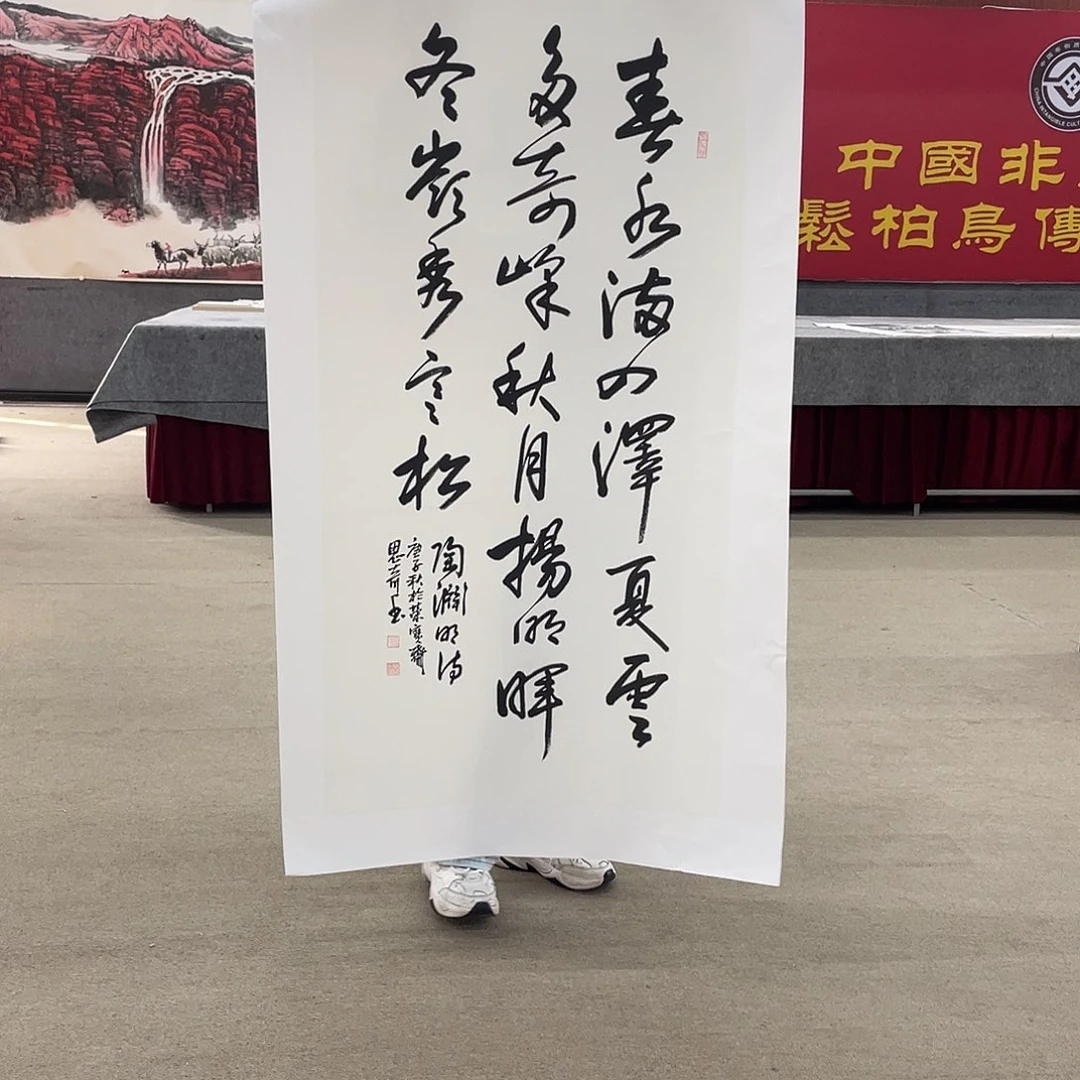 春水滿四澤夏雲
多奇峰秋月揚明暉
冬嶺秀寒松
陶淵明詩
庚子秋於榮寶齋
中國非
鬆柏鳥傳
CHINA INTANGIBLE CULT